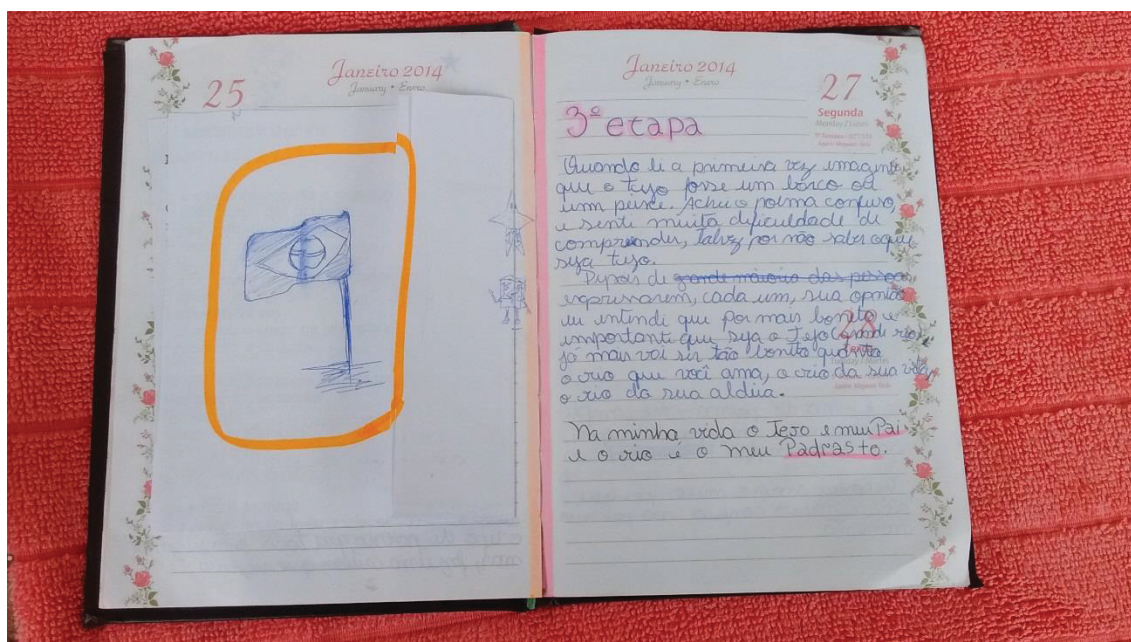 25
Janeiro 2014
January • Enero
Janeiro 2014
January • Enero
27
Segunda
3ª etapa
Quando li a primeira vez imaginei
que o tejo fosse um barco ou
um peixe. Achei o poema confuso,
e senti muita dificuldade de
compreender, talvez por não saber o que
seja tejo.
Depois de grande maioria das pessoas
expressarem, cada um, sua opinião
eu entendi que por mais bonito e
importante que seja o Tejo rio,
já mais vai ser tão bonito quanto
o rio que você ama, o rio da sua vida,
o rio da sua aldeia.
28
Na minha vida o Tejo e meu Pai
e o rio é o meu Padrasto.